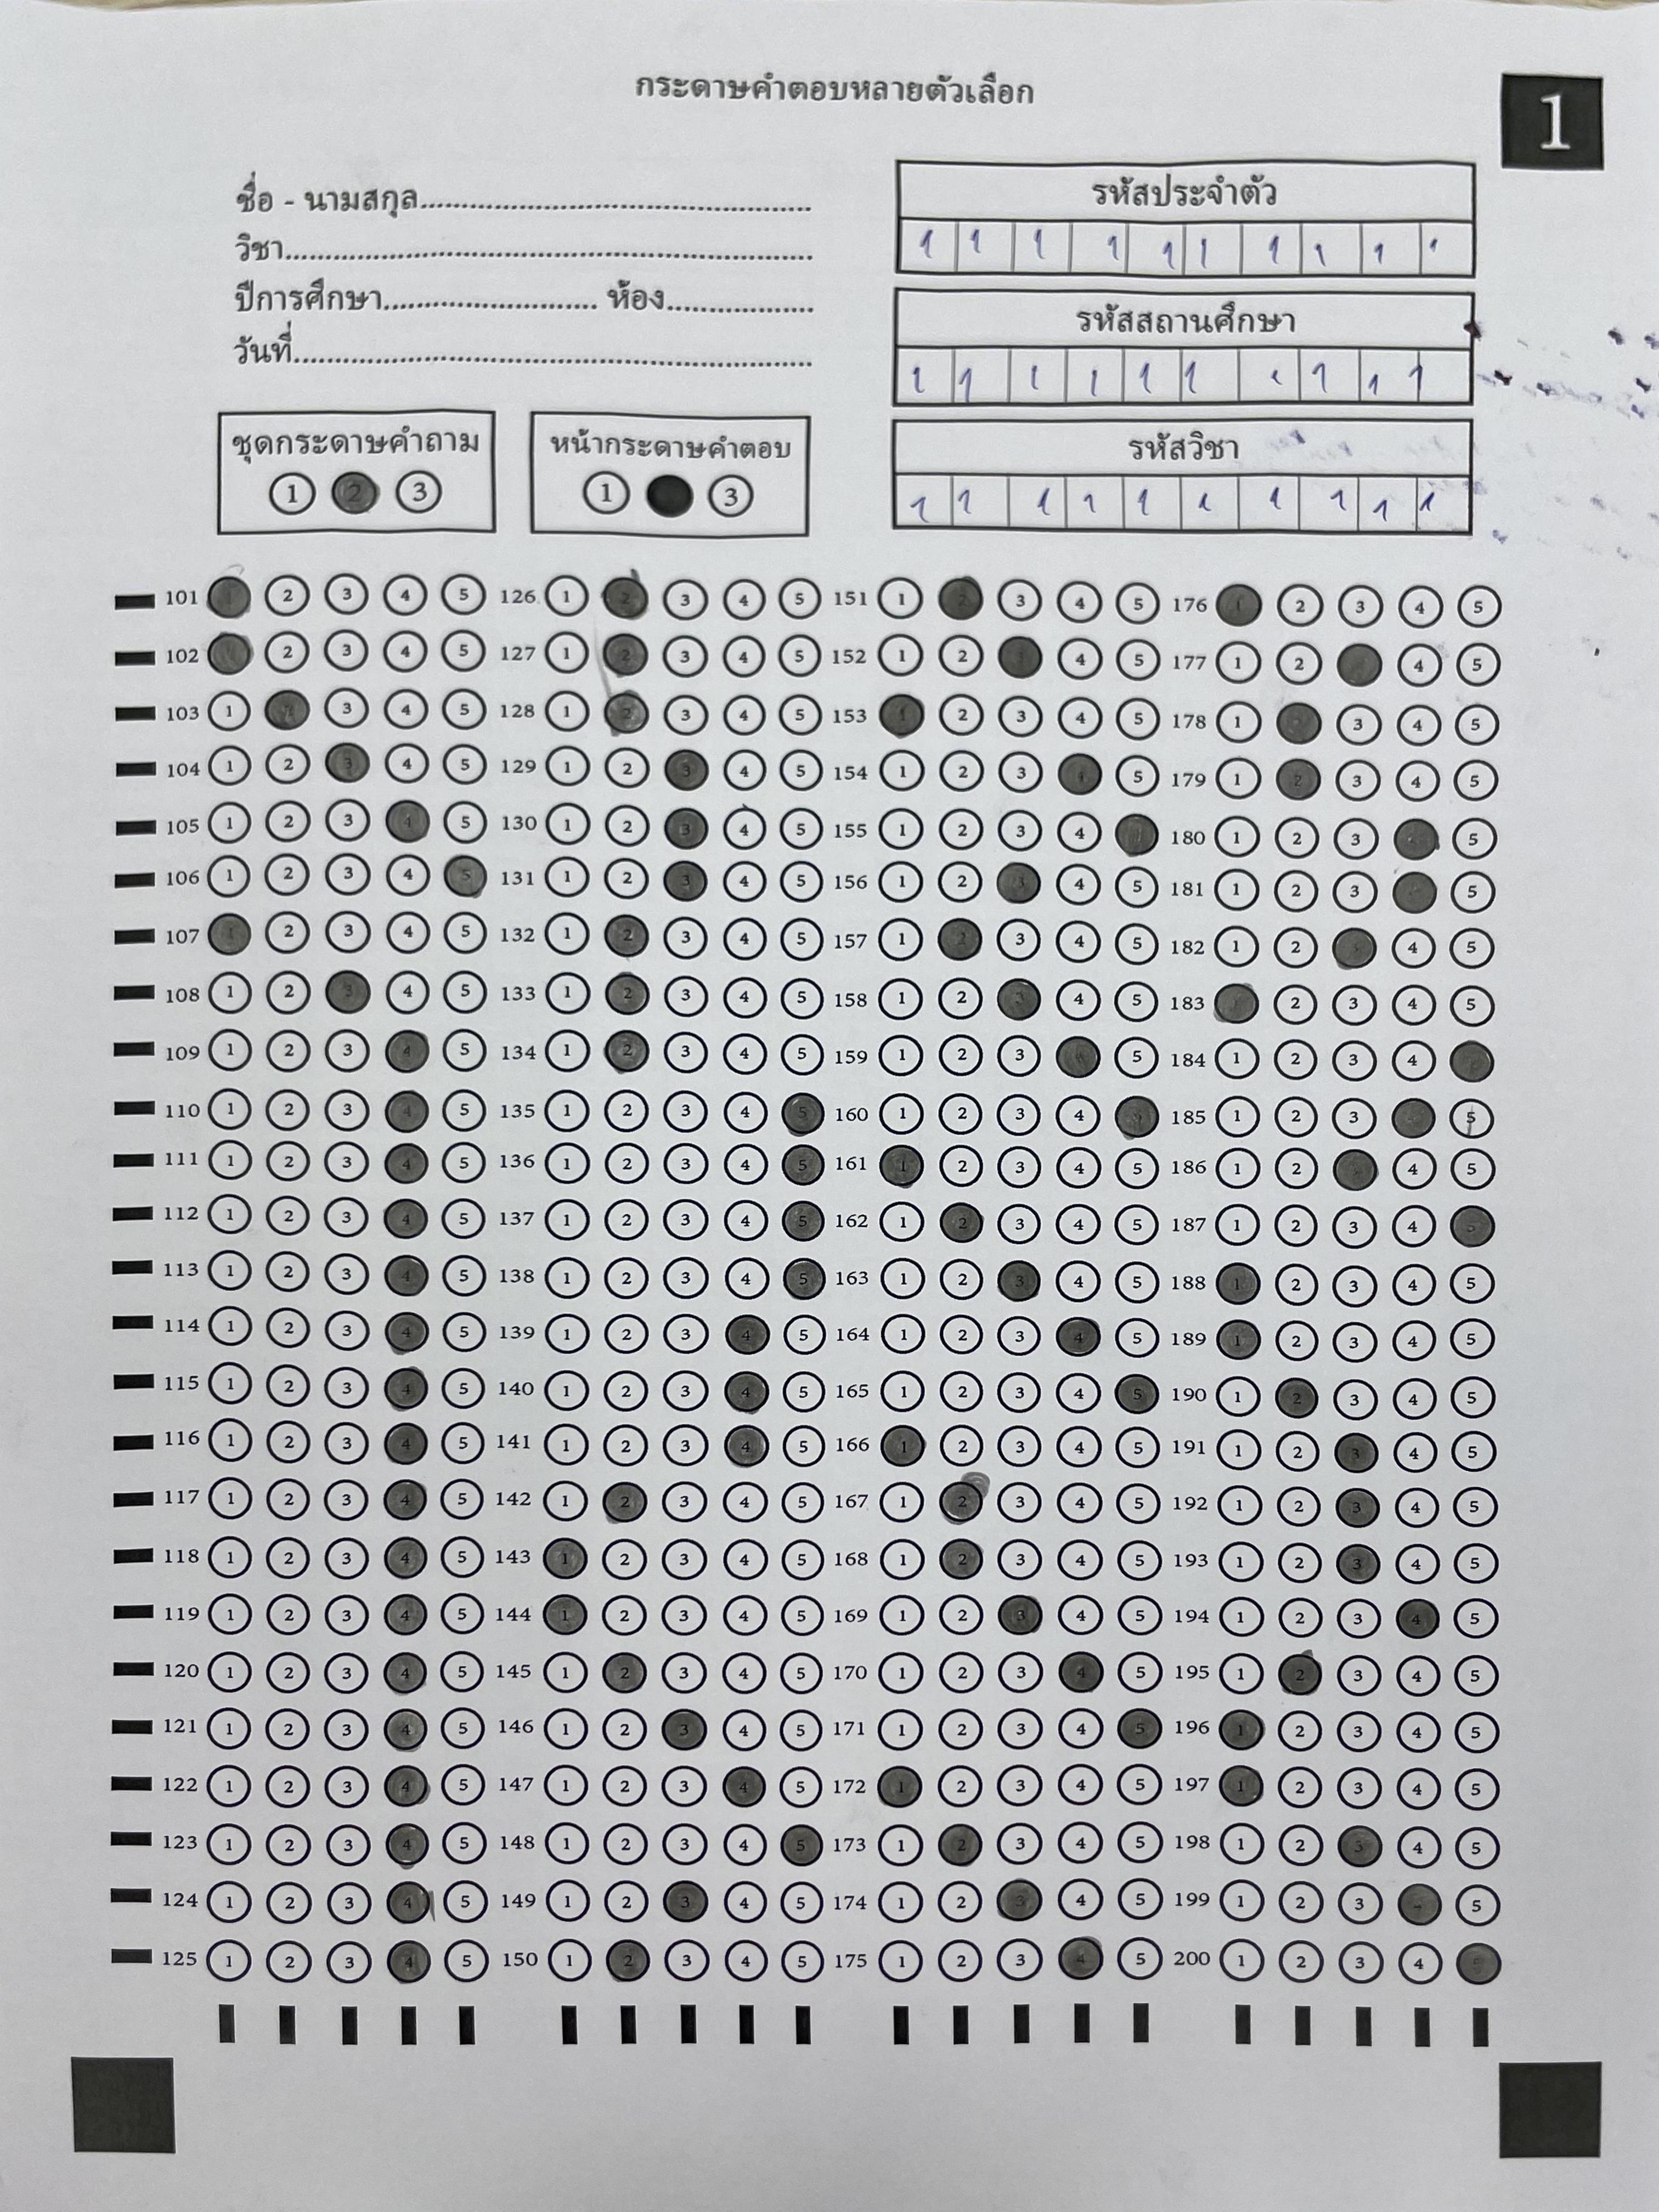 กระดาษคำตอบหลายตัวเลือก
1
ชื่อ - นามสกุล
วิชา
ปีการศึกษา ห้อง
วันที่
รหัสประจำตัว
1 1 1 1 1 1 1 1 1 1
รหัสสถานศึกษา
1 1 1 1 1 1 1 1 1 1
รหัสวิชา
1 1 1 1 1 1 1 1 1 1
ชุดกระดาษคำถาม
1 2 3
หน้ากระดาษคำตอบ
1 3
101 1 2 3 4 5 126 1 2 3 4 5 151 1 2 3 4 5 176 1 2 3 4 5
102 2 3 4 5 127 1 2 3 4 5 152 1 2 3 4 5 177 1 2 4 5
103 1 2 3 4 5 128 1 2 3 4 5 153 1 2 3 4 5 178 1 2 3 4 5
104 1 2 3 4 5 129 1 2 3 4 5 154 1 2 3 4 5 179 1 2 3 4 5
105 1 2 3 4 5 130 1 2 3 4 5 155 1 2 3 4 180 1 2 3 4 5
106 1 2 3 4 5 131 1 2 3 4 5 156 1 2 3 4 5 181 1 2 3 4 5
107 1 2 3 4 5 132 1 2 3 4 5 157 1 2 3 4 5 182 1 2 3 4 5
108 1 2 3 4 5 133 1 2 3 4 5 158 1 2 3 4 5 183 1 2 3 4 5
109 1 2 3 4 5 134 1 2 3 4 5 159 1 2 3 5 184 1 2 3 4
110 1 2 3 4 5 135 1 2 3 4 5 160 1 2 3 4 5 185 1 2 3 4 5
111 1 2 3 4 5 136 1 2 3 4 5 161 1 2 3 4 5 186 1 2 3 4 5
112 1 2 3 4 5 137 1 2 3 4 5 162 1 2 3 4 5 187 1 2 3 4 5
113 1 2 3 4 5 138 1 2 3 4 5 163 1 2 3 4 5 188 1 2 3 4 5
114 1 2 3 4 5 139 1 2 3 4 5 164 1 2 3 4 5 189 1 2 3 4 5
115 1 2 3 4 5 140 1 2 3 4 5 165 1 2 3 4 5 190 1 2 3 4 5
116 1 2 3 4 5 141 1 2 3 4 5 166 1 2 3 4 5 191 1 2 3 4 5
117 1 2 3 4 5 142 1 2 3 4 5 167 1 2 3 4 5 192 1 2 3 4 5
118 1 2 3 4 5 143 1 2 3 4 5 168 1 2 3 4 5 193 1 2 3 4 5
119 1 2 3 4 5 144 1 2 3 4 5 169 1 2 3 4 5 194 1 2 3 4 5
120 1 2 3 4 5 145 1 2 3 4 5 170 1 2 3 4 5 195 1 2 3 4 5
121 1 2 3 4 5 146 1 2 3 4 5 171 1 2 3 4 5 196 1 2 3 4 5
122 1 2 3 4 5 147 1 2 3 4 5 172 1 2 3 4 5 197 1 2 3 4 5
123 1 2 3 4 5 148 1 2 3 4 5 173 1 2 3 4 5 198 1 2 3 4 5
124 1 2 3 4 5 149 1 2 3 4 5 174 1 2 3 4 5 199 1 2 3 4 5
125 1 2 3 4 5 150 1 2 3 4 5 175 1 2 3 4 5 200 1 2 3 4 5